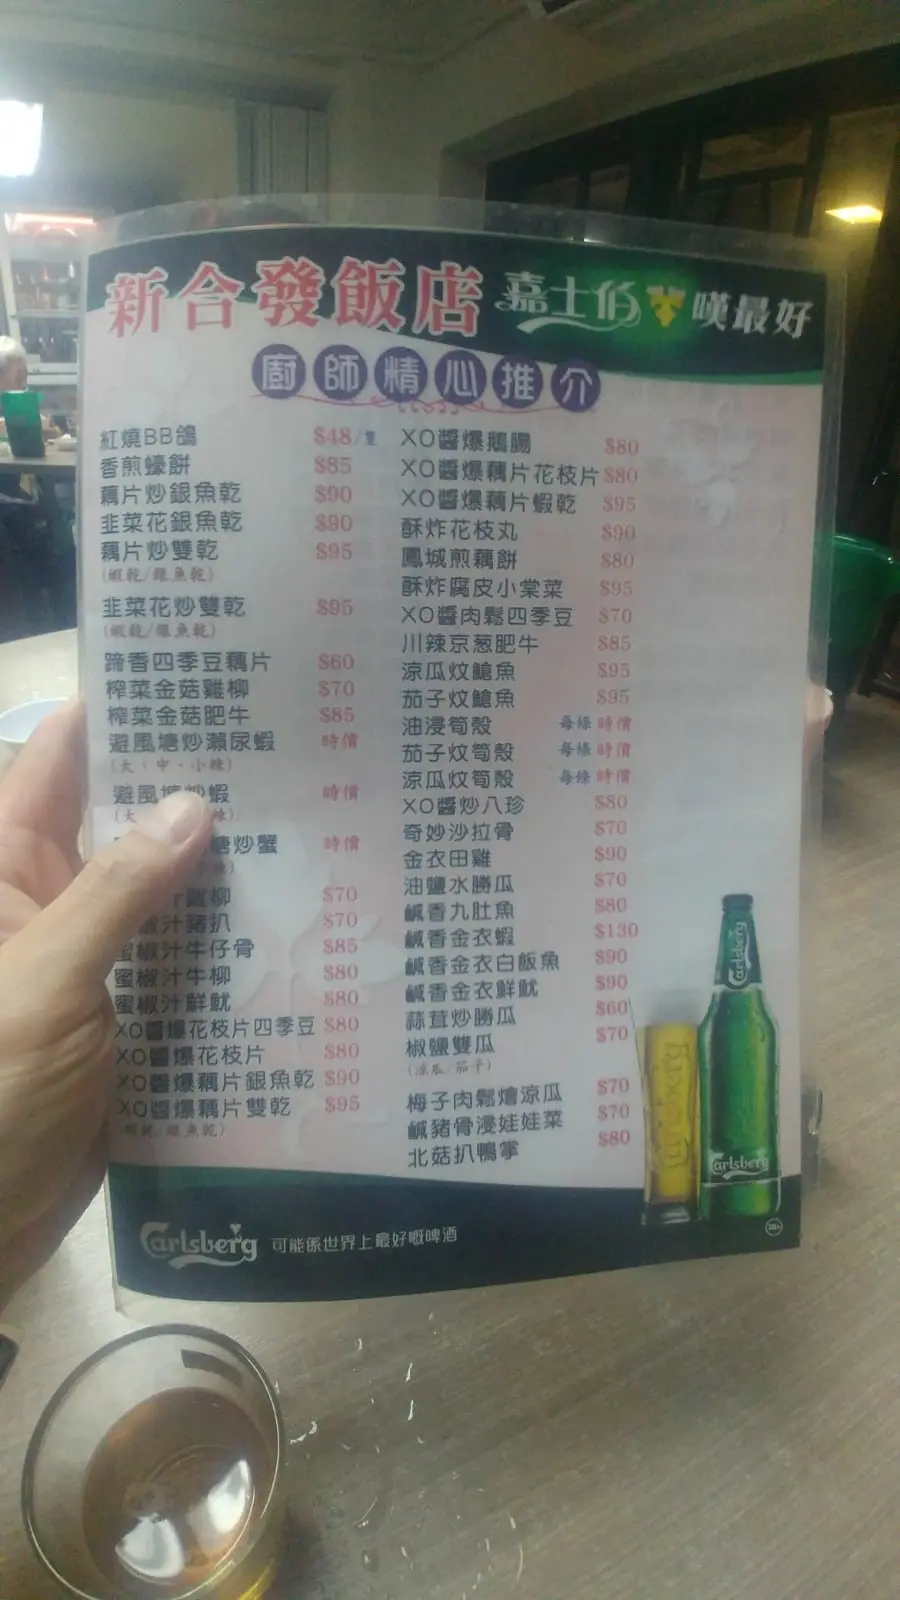 新合發飯店 嘉士伯 嘆最好
廚師精心推介
紅燒BB鴿 $48/隻
香煎蠔餅 $85
藕片炒銀魚乾 $90
韭菜花銀魚乾 $90
藕片炒雙乾 $95
(蝦乾/銀魚乾)
韭菜花炒雙乾 $95
(蝦乾/銀魚乾)
蹄香四季豆藕片 $60
榨菜金菇雞柳 $70
榨菜金菇肥牛 $85
避風塘炒瀨尿蝦 時價
(大、中、小辣)
避風塘炒蝦 時價
(大 辣)
塘炒蟹 時價
汁雞柳 $70
椒汁豬扒 $70
蜜椒汁牛仔骨 $85
蜜椒汁牛柳 $80
蜜椒汁鮮魷 $80
XO醬爆花枝片四季豆 $80
XO醬爆花枝片 $80
XO醬爆藕片銀魚乾 $90
XO醬爆藕片雙乾 $95
(蝦乾/銀魚乾)
XO醬爆鵝腸 $80
XO醬爆藕片花枝片 $80
XO醬爆藕片蝦乾 $95
酥炸花枝丸 $90
鳳城煎藕餅 $80
酥炸腐皮小棠菜 $95
XO醬肉鬆四季豆 $70
川辣京葱肥牛 $85
涼瓜炆鎗魚 $95
茄子炆鎗魚 $95
油浸筍殼 每條 時價
茄子炆筍殼 每條 時價
涼瓜炆筍殼 每條 時價
XO醬炒八珍 $80
奇妙沙拉骨 $70
金衣田雞 $90
油鹽水勝瓜 $70
鹹香九肚魚 $80
鹹香金衣蝦 $130
鹹香金衣白飯魚 $90
鹹香金衣鮮魷 $90
蒜茸炒勝瓜 $60
椒鹽雙瓜 $70
(涼瓜/茄子)
梅子肉鬆燴涼瓜 $70
鹹豬骨浸娃娃菜 $70
北菇扒鴨掌 $80
Carlsberg
Carlsberg
Carlsberg
Carlsberg 可能係世界上最好嘅啤酒
18+